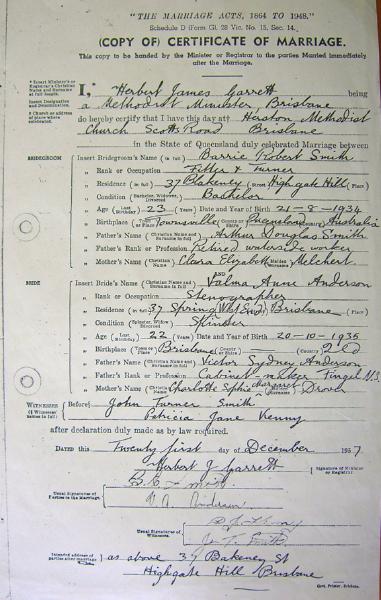 "THE MARRIAGE ACTS, 1864 TO 1948."
Schedule D (Form Gl. 28 Vic. No. 15, Sec. 14.)
(COPY OF) CERTIFICATE OF MARRIAGE.
This copy to be handed by the Minister or Registrar to the parties Married immediately
after the Marriage.
* Insert Minister's or Registrar's Christian Name and Surname at full length.
I, * Herbert James Garrett being
Insert Designation and Denomination.
a Methodist Minister, Brisbane
‡ Church or address of place where celebrated.
do hereby certify that I have this day at ‡ Herston Methodist
Church Scotts Road Brisbane
in the State of Queensland duly celebrated Marriage between
BRIDEGROOM Insert Bridegroom's Name (in full) Barrie Robert Smith
" Rank or Occupation Fitter & Turner
" Residence (in full) 37 Blakeney (Street) Highgate Hill (Place)
" Condition (Bachelor, Widower, Divorced) Bachelor
" Age (Last Birthday) 23 Date and Year of Birth 21-8-1934
" Birthplace (Town or Place) Townsville (County or State) Queensland (Country) Australia
" Father's Name (Christian Name and Surname in full) Arthur Douglas Smith
" Father's Rank or Profession Retired waterside worker
" Mother's Name (Christian Name) Clara Elizabeth (Maiden Surname) Melchert
AND
BRIDE Insert Bride's Name (Christian Name and Surname in full) Valma Anne Anderson
" Rank or Occupation Stenographer
" Residence (in full) 37 Spring St West End Brisbane (Place)
" Condition (Spinster, Widow, Divorced) Spinster
" Age (Last Birthday) 22 Date and Year of Birth 20-10-1935
" Birthplace (Town or Place) Brisbane (County or State) (Country) Qld
" Father's Name (Christian Name and Surname in full) Victor Sydney Anderson
" Father's Rank or Profession Cabinet maker
" Mother's Name (Christian Name) Charlotte Sophie Margaret (Maiden Surname) Drover
WITNESSES (2 Witnesses' names in full) Before John Turner Smith
Patricia Jane Kenny
after declaration duly made as by law required.
DATED this Twenty first day of December 1957
Herbert J Garrett Signature of Minister or Registrar
Usual Signatures of Parties to the Marriage.
B. R. Smith
V. A. Anderson
Usual Signatures of Witnesses.
P. J. Kenny
J. T. Smith
Intended address of parties after marriage as above 37 Bakeney St
Highgate Hill Brisbane
Govt. Printer, Brisbane.